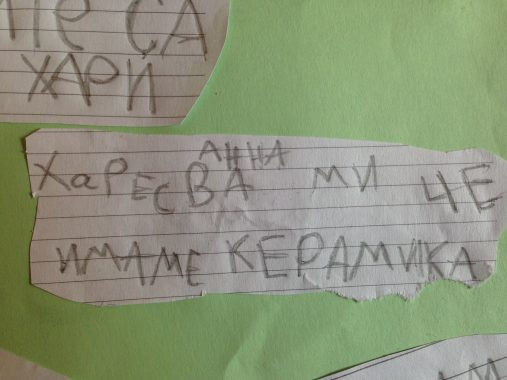 ХАРИ
АННА
ХаРЕСВА МИ ЧЕ
ИМАМЕ КЕРАМИКА